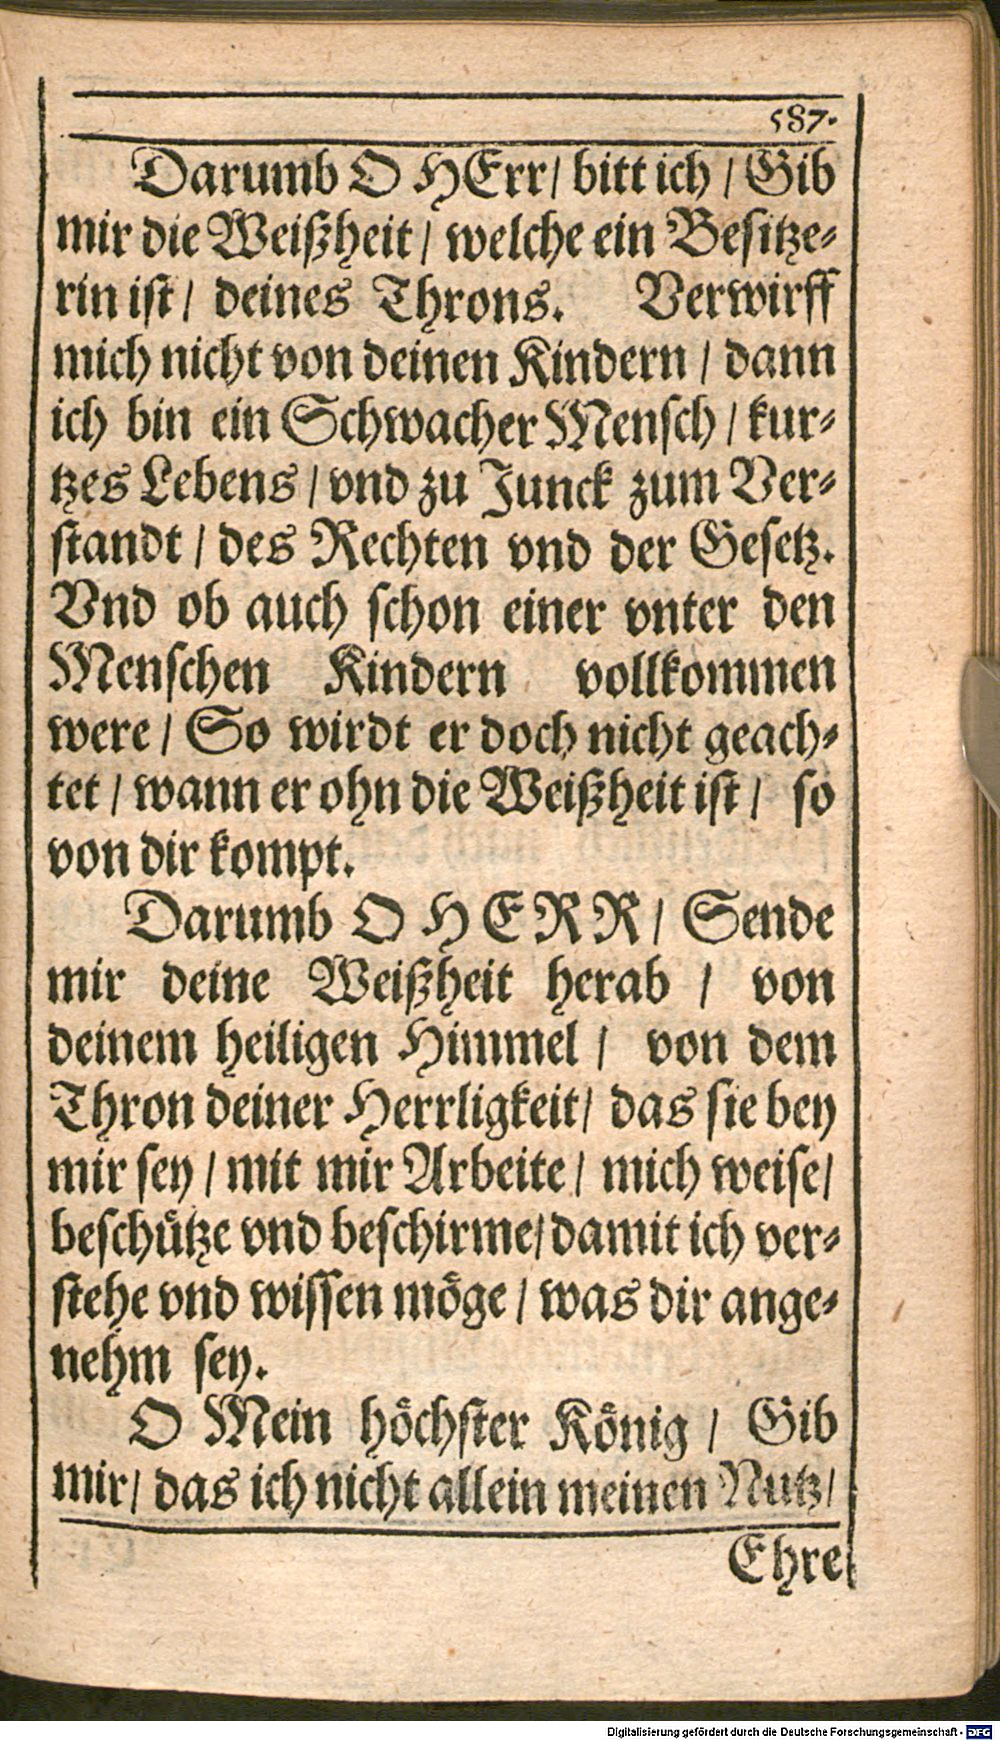 587.
Darumb O HErr/ bitt ich / Gib
mir die Weißheit / welche ein Besitze-
rin ist / deines Throns. Verwirff
mich nicht von deinen Kindern / dann
ich bin ein Schwacher Mensch / kur-
tzes Lebens / vnd zu Junck zum Ver-
standt / des Rechten vnd der Gesetz.
Vnd ob auch schon einer vnter den
Menschen Kindern vollkommen
were / So wirdt er doch nicht geach-
tet / wann er ohn die Weißheit ist / so
von dir kompt.
Darumb O HERR / Sende
mir deine Weißheit herab / von
deinem heiligen Himmel / von dem
Thron deiner Herrligkeit / das sie bey
mir sey / mit mir Arbeite / mich weise /
beschütze vnd beschirme / damit ich ver-
stehe vnd wissen möge / was dir ange-
nehm sey.
O Mein höchster König / Gib
mir / das ich nicht allein meinen Nutz /
Ehre
Digitalisierung gefördert durch die Deutsche Forschungsgemeinschaft - DFG